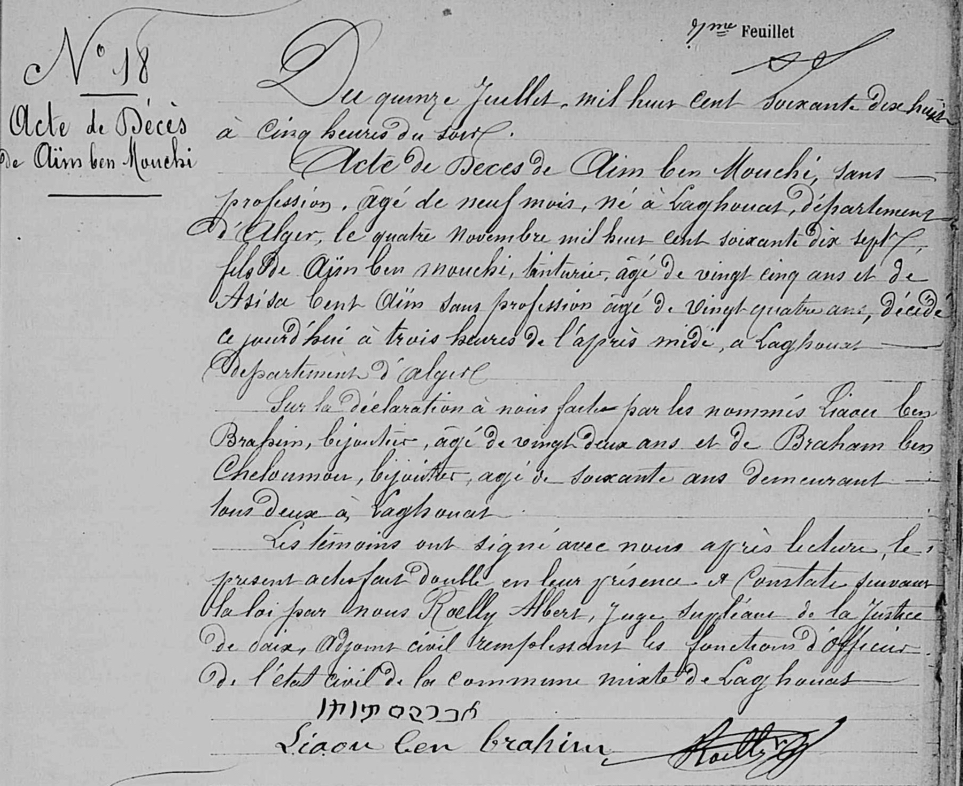 7me Feuillet
N° 18
Acte de Décès
de Aïm ben Mouchi
Du quinze Juillet mil huit cent soixante dix huit
à cinq heures du soir.
Acte de Décès de Aïm ben Mouchi, sans
profession, âgé de neuf mois, né à Laghouat, département
d'Alger, le quatre novembre mil huit cent soixante dix sept,
fils de Aïm ben mouchi, tinturier, âgé de vingt cinq ans et de
Asisa bent Aïm sans profession âgé de vingt quatre ans, décédé
ce jourd'hui à trois heures de l'après midi, a Laghouat
département d'Alger
Sur la déclaration à nous faite par les nommés Liaou ben
Brahim, bijoutier, âgé de vingt deux ans et de Braham ben
Cheloumou, bijoutier, agé de soixante ans demeurant
tous deux à Laghouat.
Les témoins ont signé avec nous après lecture, le
présent acte fait double en leur présence et Constaté suivant
la loi par nous Roelly Albert, Juge supléant de la Justice
de paix, adjoint civil remplissant les fonctions d'officier
de l'état civil de la commune mixte de Laghouat
Liaou ben brahim
Roelly